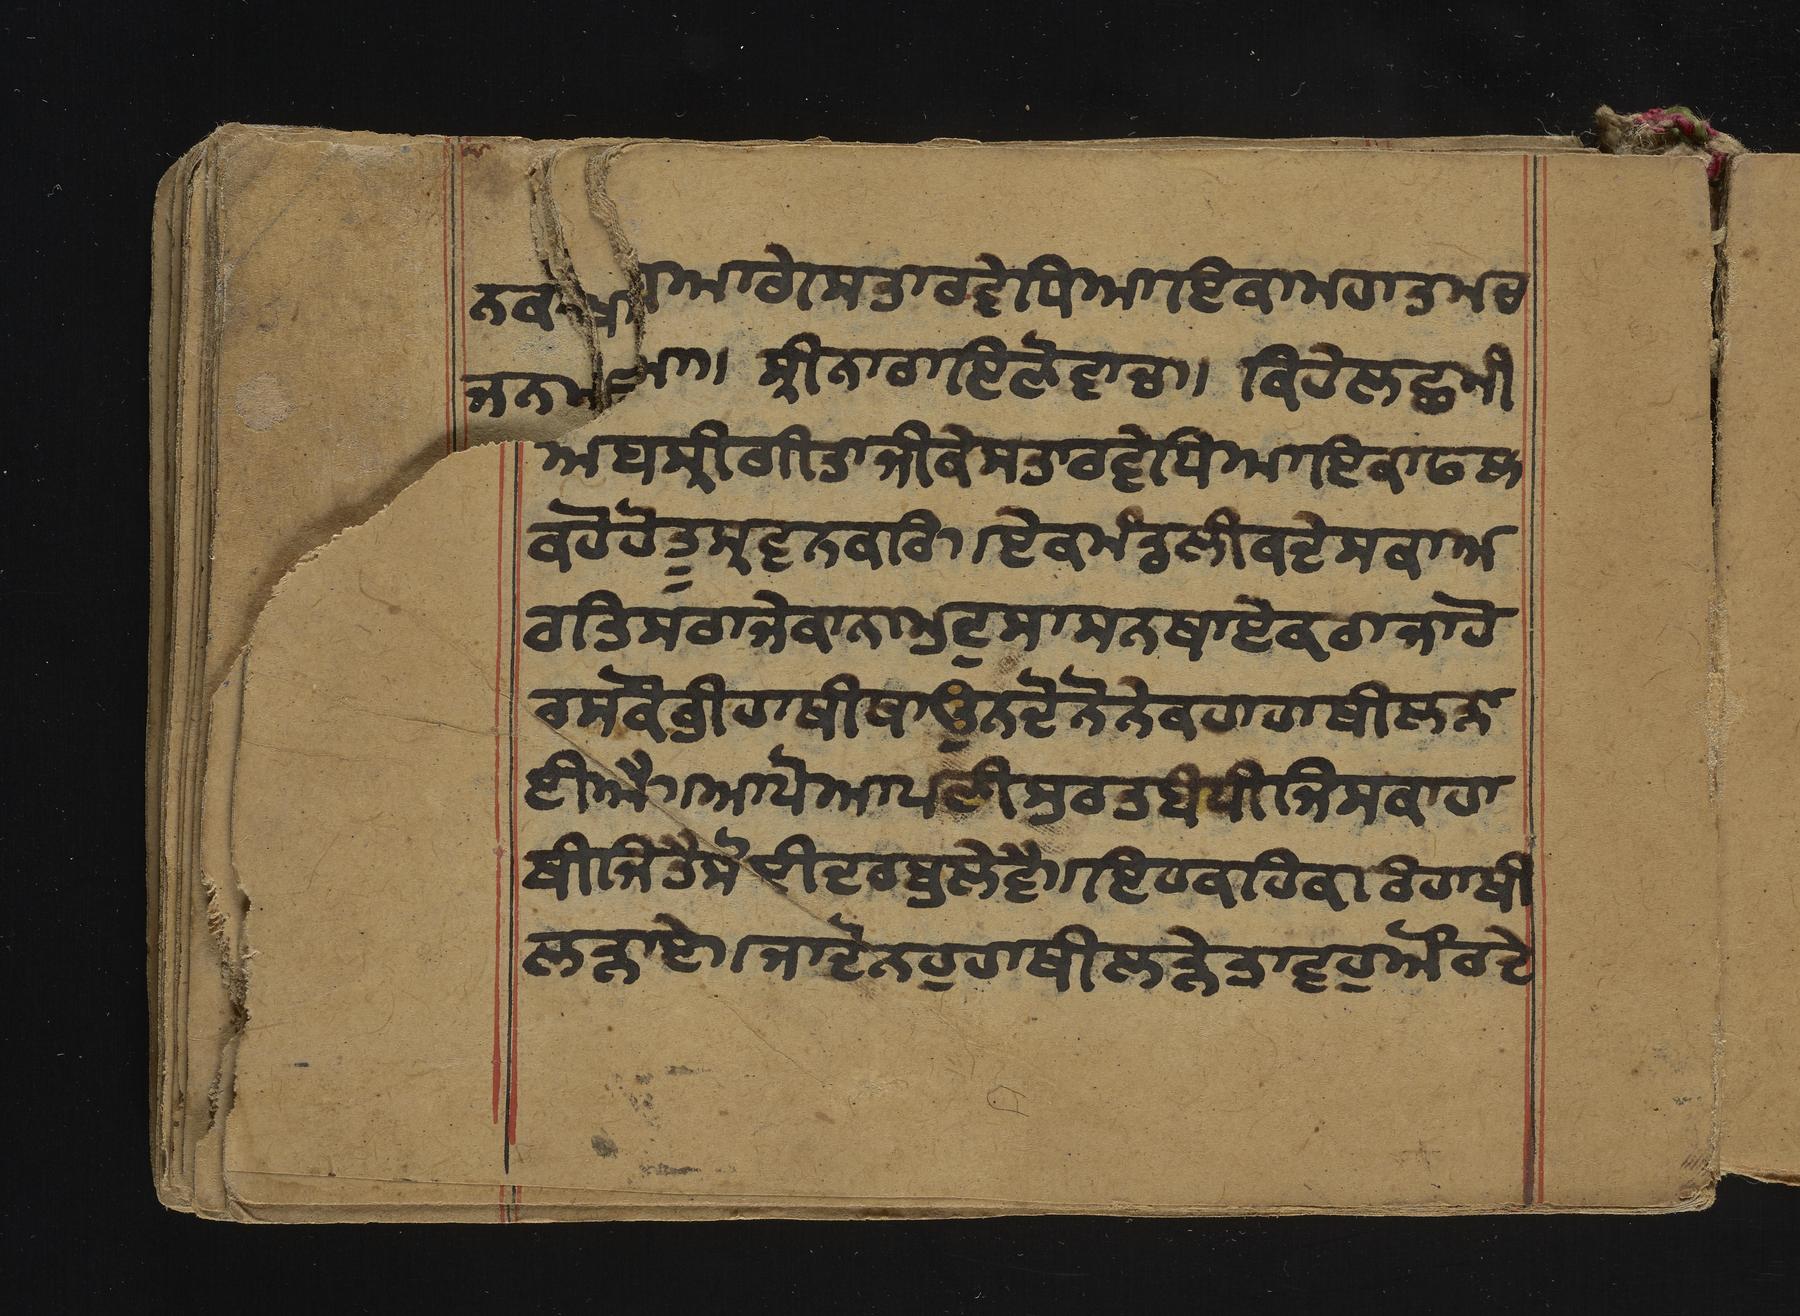 ਆਰੇ।ਸਤਾਰਵੇ ਧਿਆਇ ਕਾ ਮਹਾਤਮ ਚ
ਸ੍ਰੀ ਨਾਰਾਇਣੋਵਾਚਾ। ਕਿ ਹੇ ਲਛਮੀ
ਅਬ ਸ੍ਰੀ ਗੀਤਾ ਜੀ ਕੇ ਸਤਾਰਵੇ ਧਿਆਇ ਕਾ ਫਲ
ਕਹੋ ਹੋ ਤੂ ਸ੍ਰਵਨ ਕਰਿ।ਏਕ ਮੰਡਲੀਕ ਦੇਸ ਕਾ ਅ
ਰ ਤਿਸ ਰਾਜੇ ਕਾ ਨਾਮੁ ਦੁਸਾਸਨ ਥਾ ਏਕ ਰਾਜਾ ਹੋ
ਰਸ ਕੌ ਭੀ ਹਾਥੀ ਥਾ ਉਨ ਦੋਨੋ ਨੇ ਕਹਾ ਹਾਥੀ ਲੜਾ
ਈਐ।ਆਪੋ ਆਪਣੀ ਸੁਰਤ ਬੰਧੀ ਜਿਸ ਕਾ ਹਾ
ਥੀ ਜਿਤੈ ਸੋਈ ਦਰਬੁ ਲੇਵੈ।ਇਹ ਕਹਿ ਕਰਿ ਹਾਥੀ
ਲੜਾਏ।ਜਾ ਦੋਨਹੁ ਹਾਥੀ ਲੜੇ ਤਾ ਵਹੁ ਔਰ ਦੇ